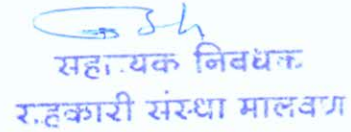 सहाय्यक निबंधक
सहकारी संस्था मालवण